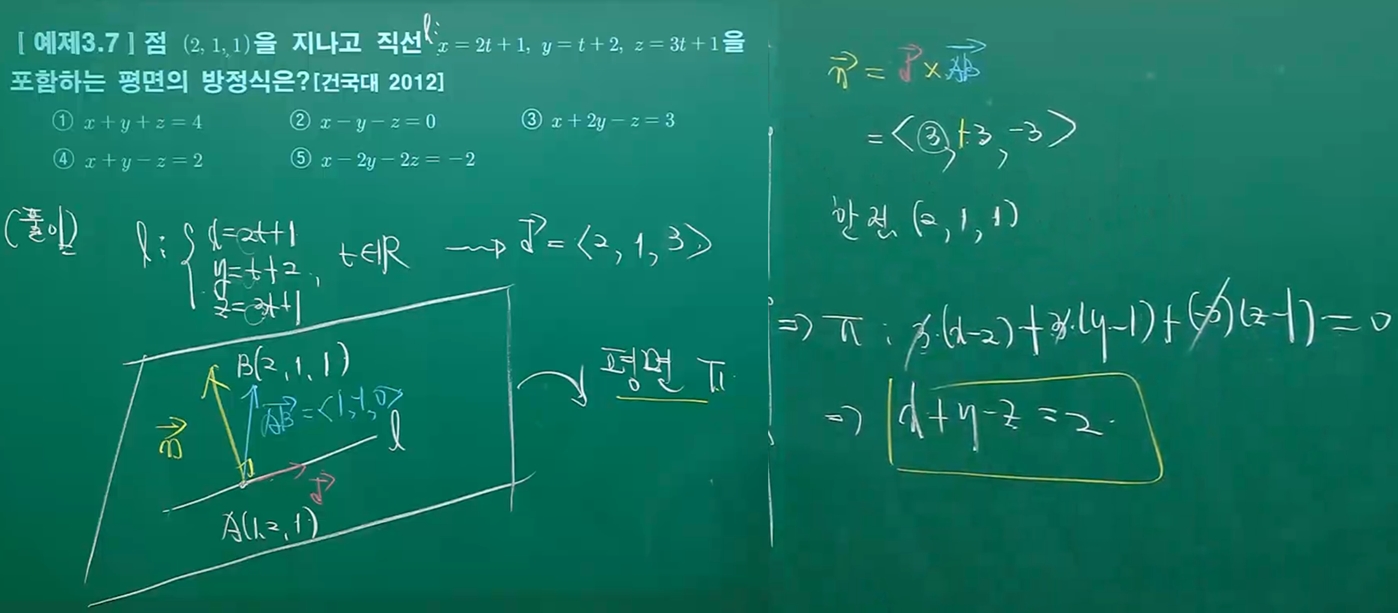 [예제3.7] 점 (2, 1, 1)을 지나고 직선 l: x = 2t+1, y = t+2, z = 3t+1을
포함하는 평면의 방정식은?[건국대 2012]
① x+y+z=4 ② x−y−z=0 ③ x+2y−z=3
④ x+y−z=2 ⑤ x−2y−2z=−2
(풀이)
l: { x=2t+1
y=t+2, t∈ℝ → d⃗ = <2, 1, 3>
z=3t+1
B(2, 1, 1)
n⃗ AB⃗ = <1, -1, 0> l
d⃗
A(1, 2, 1)
평면 π
n⃗ = d⃗ × AB⃗
= <3, +3, -3>
한 점 (2, 1, 1)
⇒ π : 3·(x-2)+3·(y-1)+(-3)(z-1)=0
⇒ x+y-z=2.